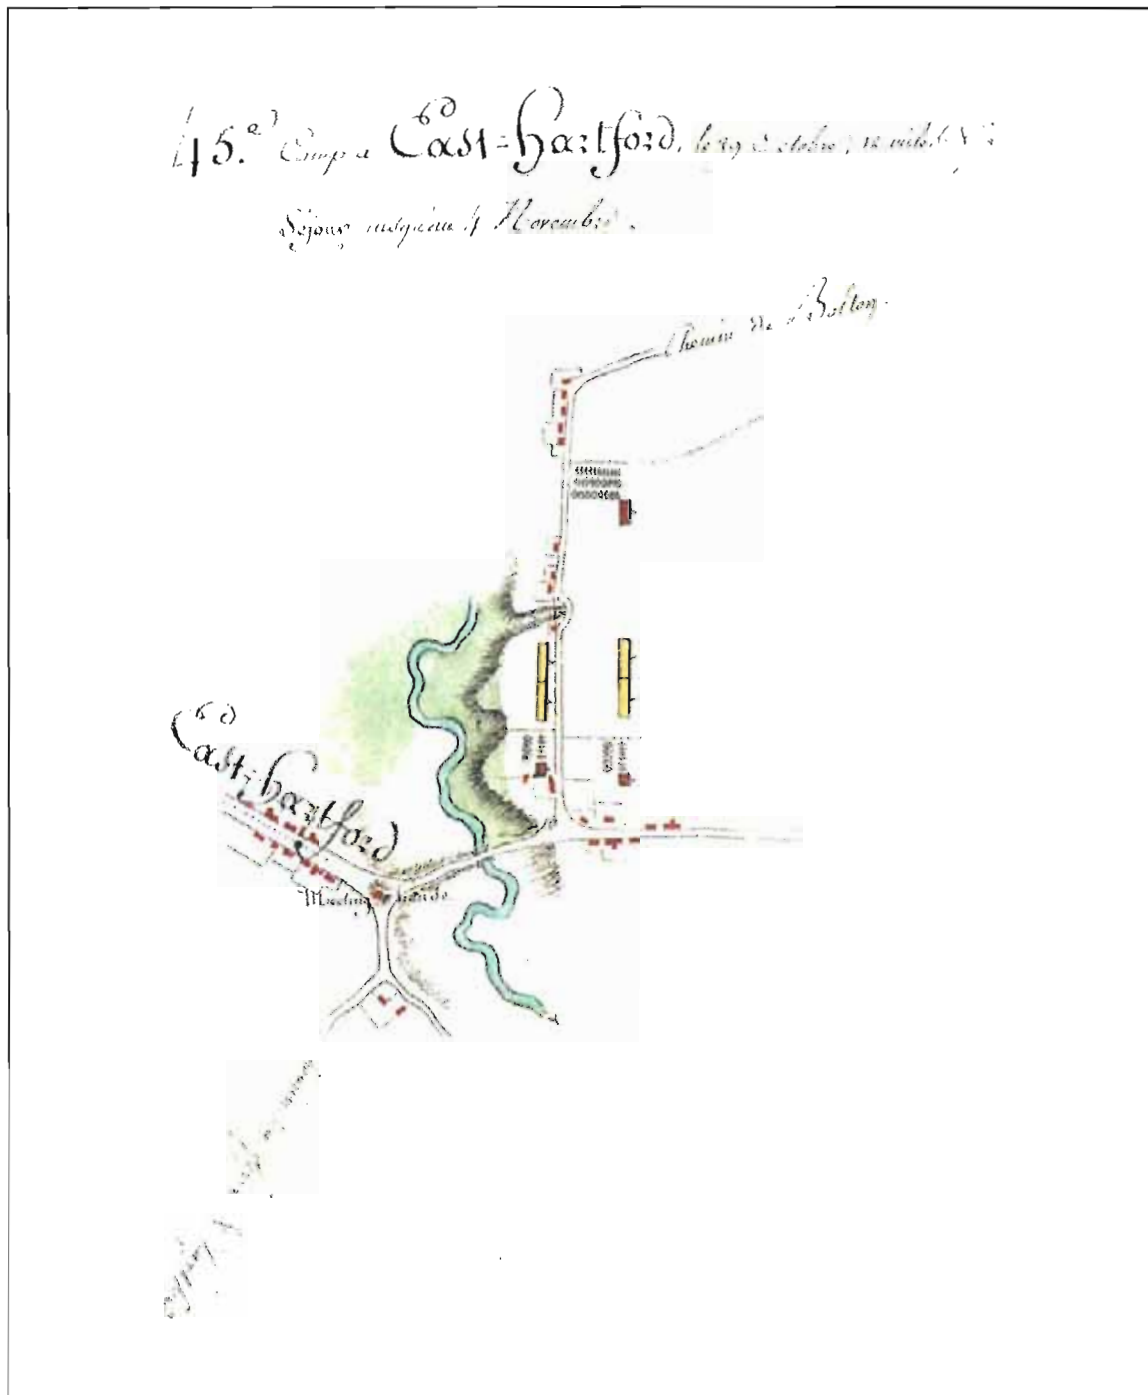 45.e Camp a East=hartford. le 29 Octobre,
Séjour jusqu'au 4 Novembre.
Chemin de Bolton.
East=hartford
Meeting house